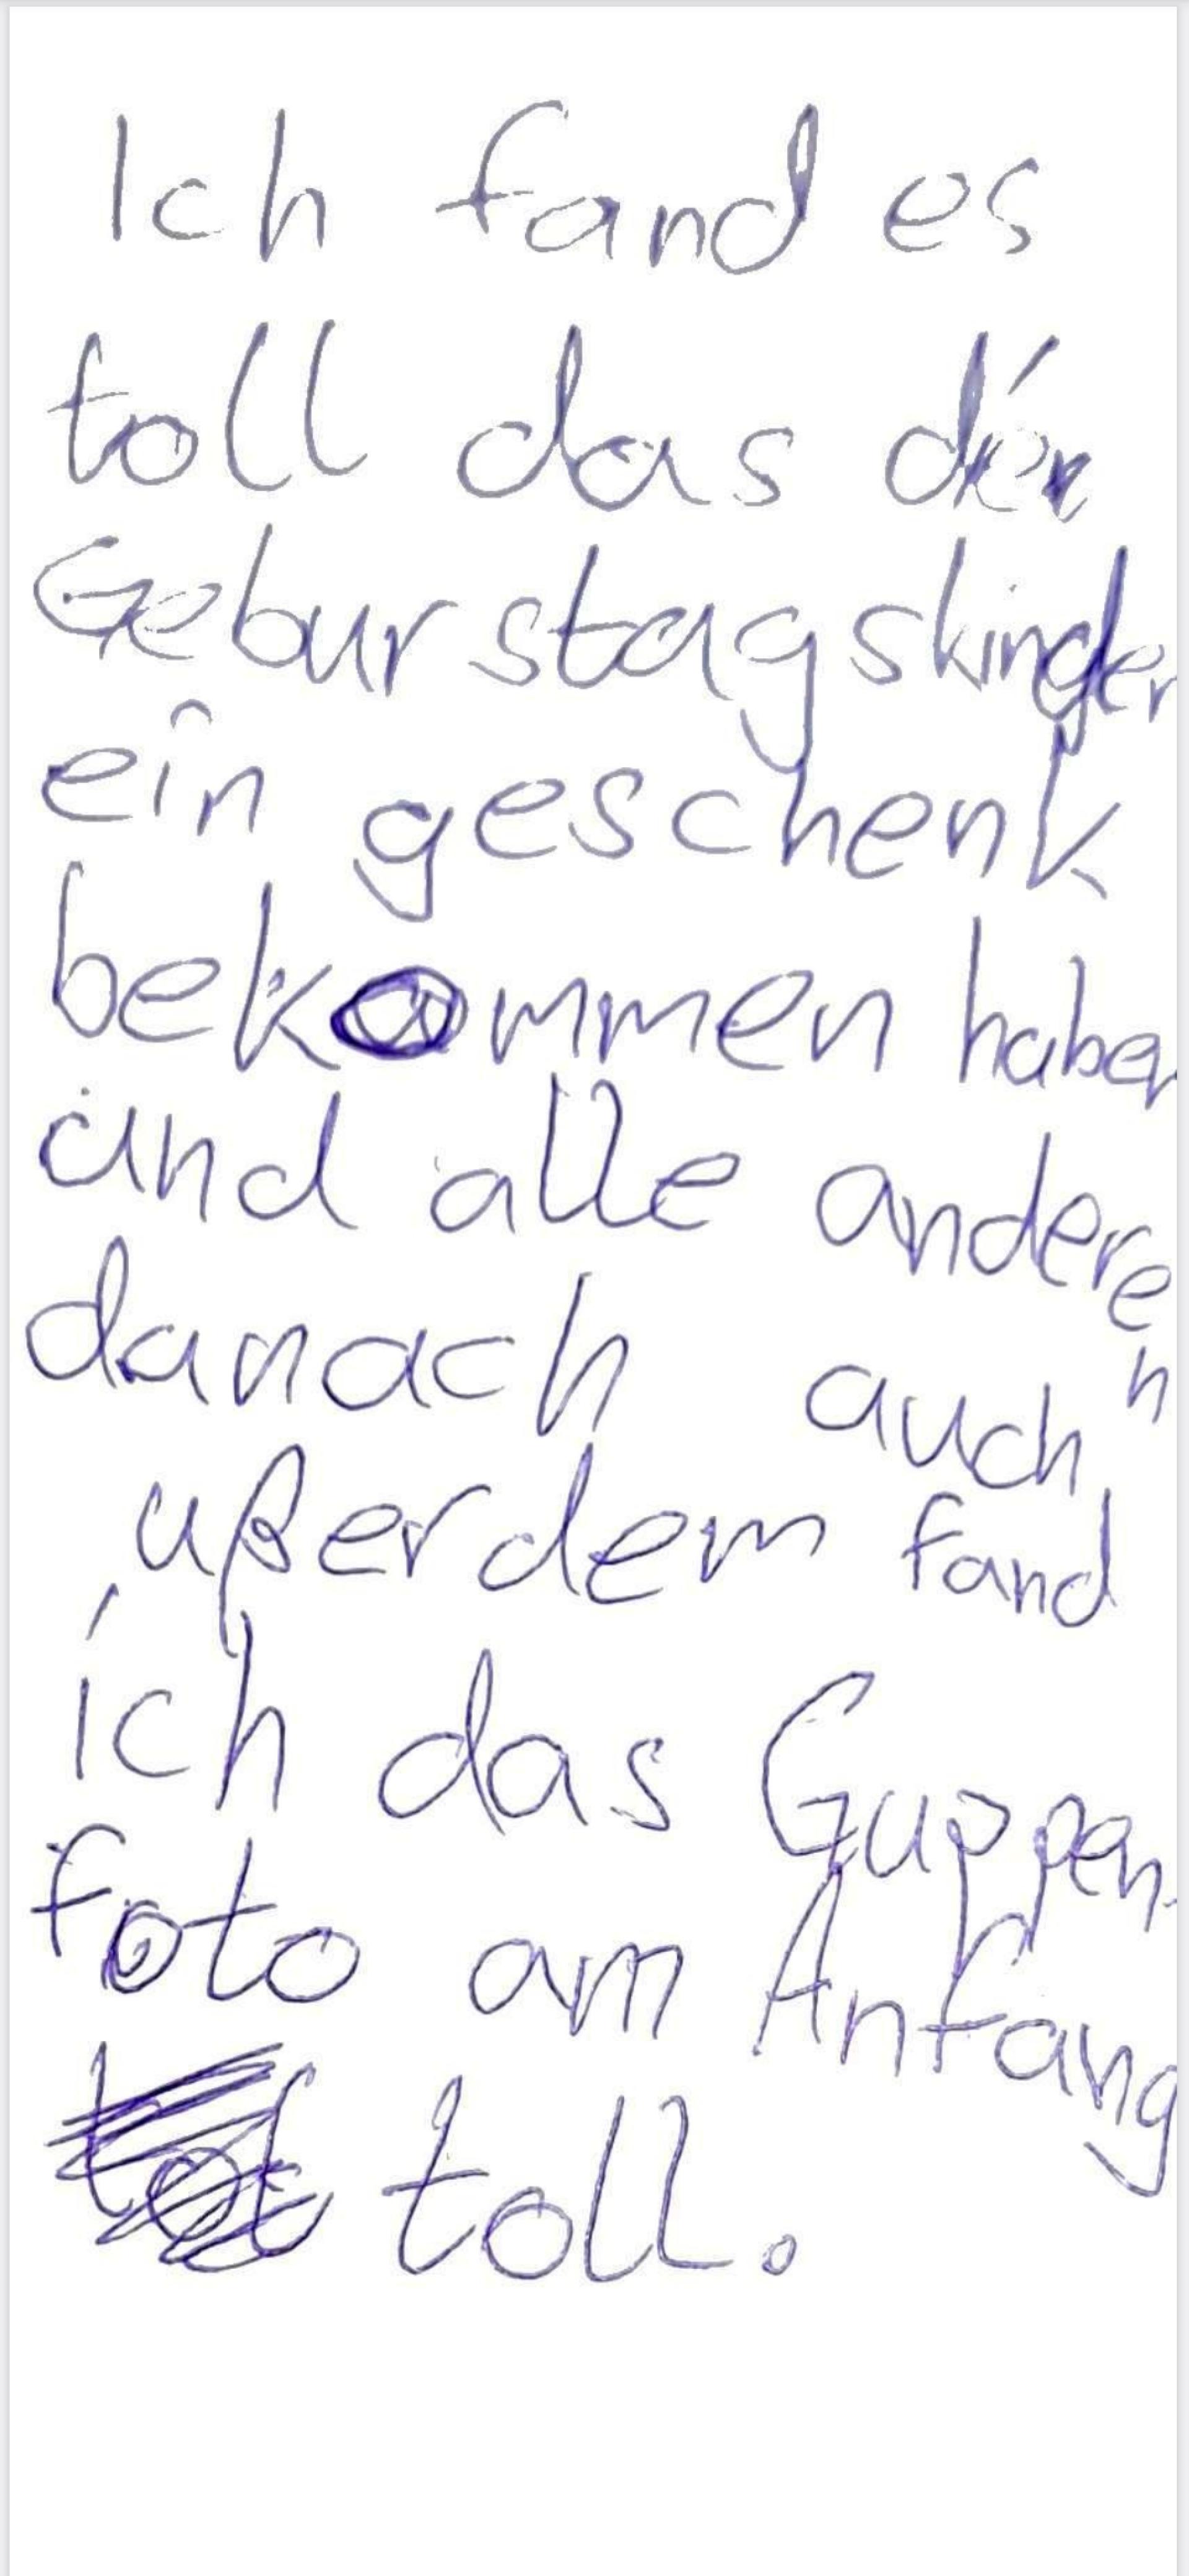 Ich fand es
toll das der
Geburstagskinder
ein geschenk
bekommen haben
und alle anderen
danach auch
, ußerdem fand
ich das Guppen-
foto am Anfang
toll.